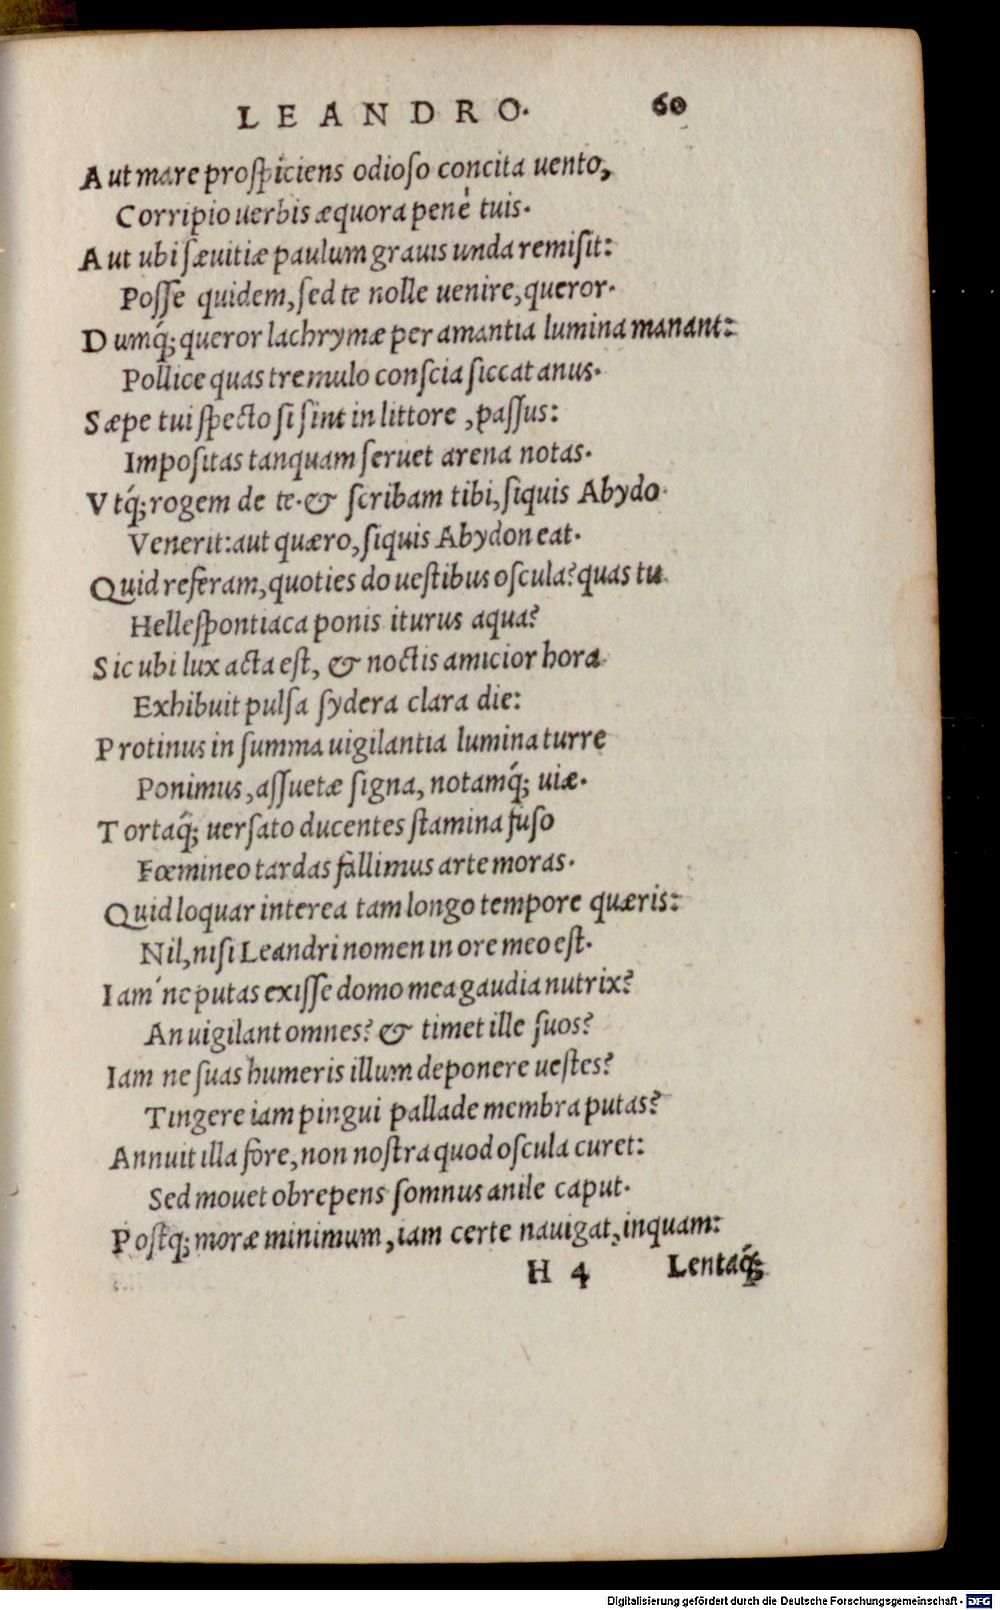 LEANDRO. 60
Aut mare prospiciens odioso concita uento,
Corripio uerbis æquora penè tuis.
Aut ubi sæuitiæ paulum grauis unda remisit:
Posse quidem, sed te nolle uenire, queror.
Dumq́; queror lachrymæ per amantia lumina manant:
Pollice quas tremulo conscia siccat anus.
Sæpe tui specto si sint in littore, passus:
Impositas tanquam seruet arena notas.
Vtq́; rogem de te. & scribam tibi, siquis Abydo
Venerit: aut quæro, siquis Abydon eat.
Quid referam, quoties do uestibus oscula? quas tu
Hellespontiaca ponis iturus aqua?
Sic ubi lux acta est, & noctis amicior hora
Exhibuit pulsa sydera clara die:
Protinus in summa uigilantia lumina turre
Ponimus, assuetæ signa, notamq́; uiæ.
Tortaq́; uersato ducentes stamina fuso
Fœmineo tardas fallimus arte moras.
Quid loquar interea tam longo tempore quæris:
Nil, nisi Leandri nomen in ore meo est.
Iam ne putas exisse domo mea gaudia nutrix?
An uigilant omnes? & timet ille suos?
Iam ne suas humeris illum deponere uestes?
Tingere iam pingui pallade membra putas?
Annuit illa fore, non nostra quod oscula curet:
Sed mouet obrepens somnus anile caput.
Postq; moræ minimum, iam certe nauigat, inquam:
H 4 Lentaq́;
Digitalisierung gefördert durch die Deutsche Forschungsgemeinschaft - DFG